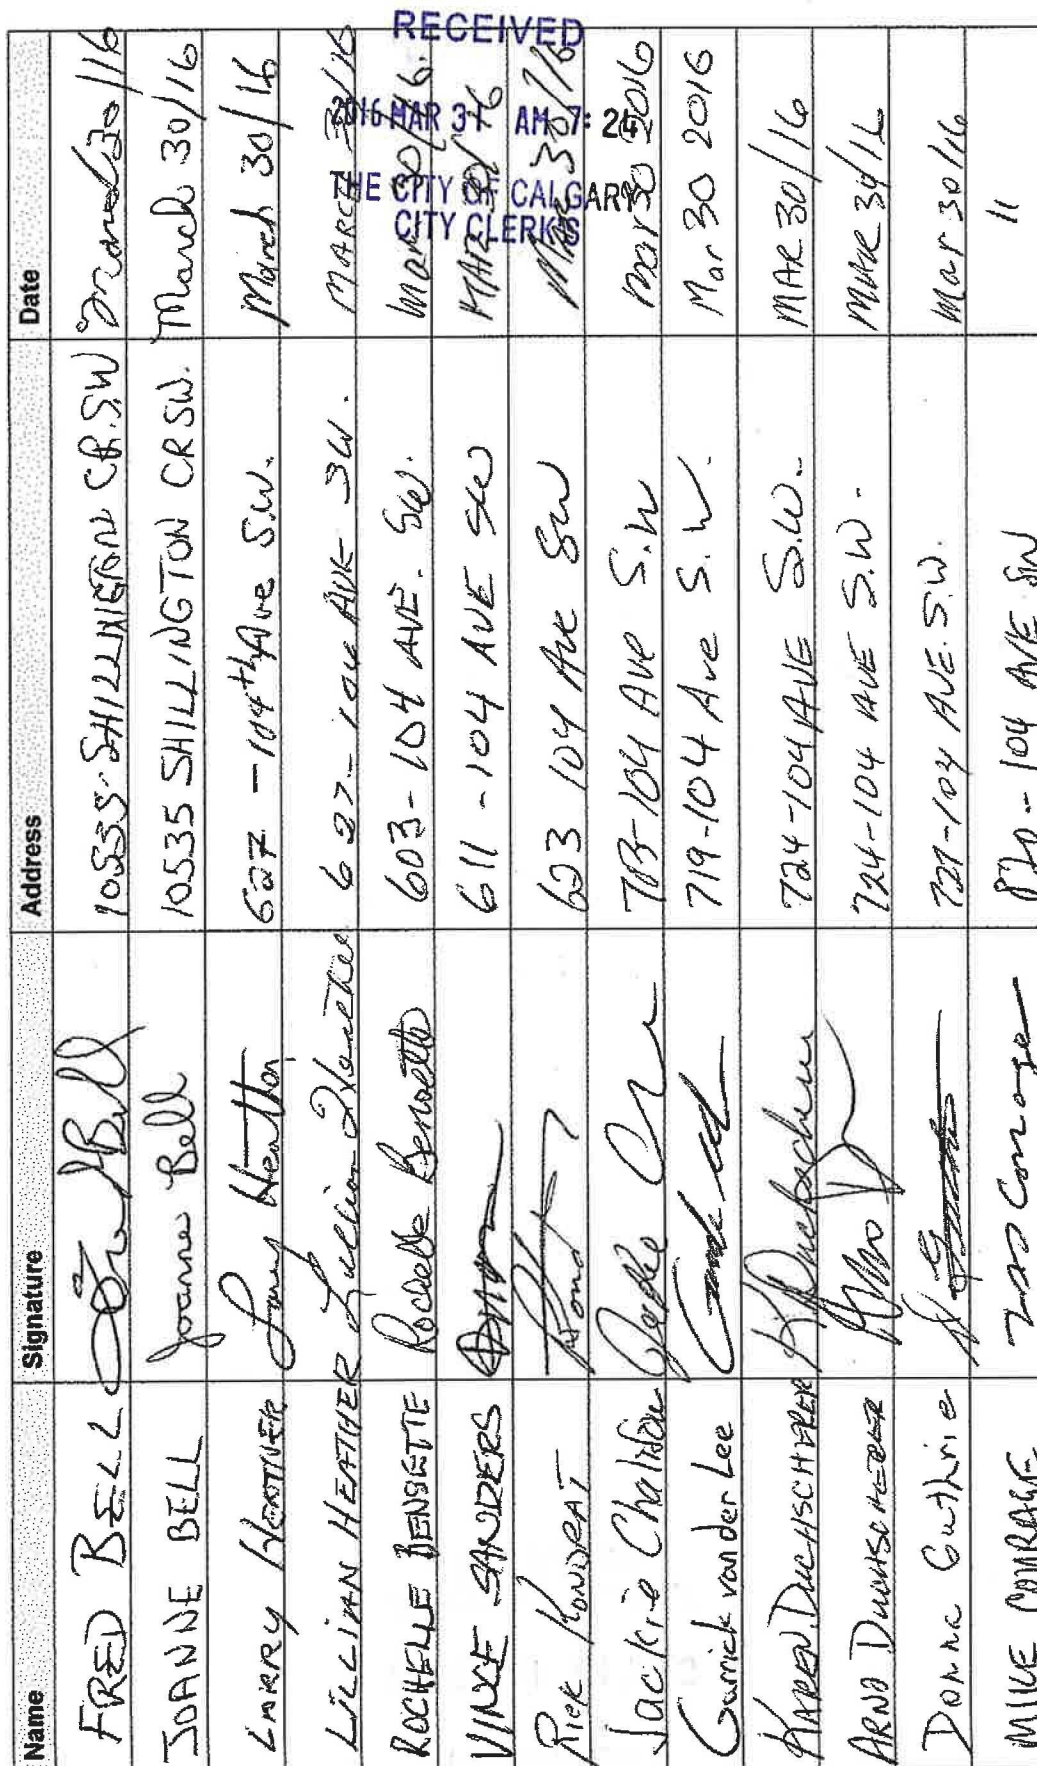 RECEIVED
2016 MAR 31 AM 7: 24
THE CITY OF CALGARY
CITY CLERK'S
Name Signature Address Date
FRED BELL 10535-SHILLINGTON CR.S.W March/30/16
JOANNE BELL Joanne Bell 10535 SHILLINGTON CR SW. March 30/16
LARRY HEATHER Larry Heather 627 - 104th Ave S.W. March 30/16
LILLIAN HEATHER Lillian Heather 627-104 AVE SW. MARCH 30/16
ROCHELLE BENSETTE Rochelle Bensette 603-104 AVE. SW. Mar 30/16.
VINCE SANDERS 611-104 AVE SW MAR 30/16
Rick KONDRAT 623 104 Ave SW Mar 30/16
Jackie 104 Ave S.W Mar 30 2016
Garrick van der Lee 719-104 Ave S.W. Mar 30 2016
KAREN DUCHSCHERER K Duchscherer 724-104 AVE S.W. MAR 30/16
ARNO DUCHSCHERER 724-104 AVE S.W. MAR 30/16
Donna Guthrie 727-104 AVE. S.W. Mar 30/16
MIKE COURAGE 820-104 AVE SW 11